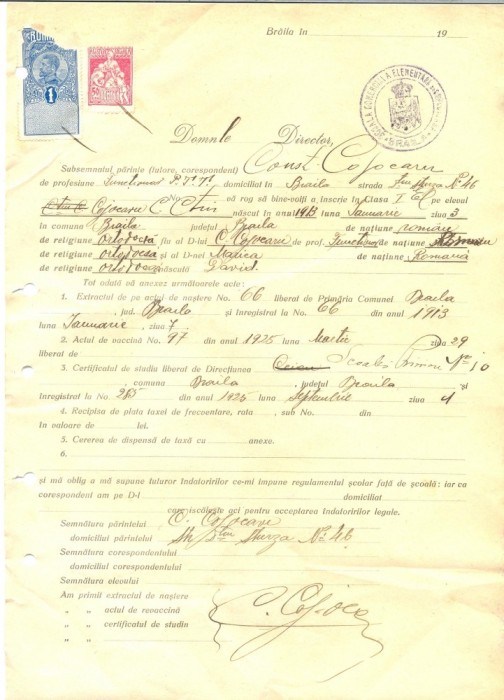 Brăila în 19
ROMÂNIA
1
50
ȘCOALA COMERCIALĂ ELEMENTARĂ
BRĂILA
Domnule Director,
Subsemnatul părinte (tutore, corespondent) Const. Cojocaru
de profesiune Funcționar P.T.T. domiciliat în Braila strada Dim Sturza No 46
No. vă rog să bine-voiți a înscrie în Clasa I pe elevul
Cojocaru C. născut în anul 1913 luna Ianuarie ziua 3
în comuna Braila județul Braila de națiune română
de religiune ortodoxă fiu al D-lui C. Cojocaru de prof. Funcționar de națiune
de religiune ortodoxa și al D-nei Malica de națiune Romană
de religiune ortodoxa născută David.
Tot odată să anexez următoarele acte:
1. Extractul de pe actul de naștere No. 66 liberat de Primăria Comunei Braila
, jud. Braila și înregistrat la No. 66 din anul 1913
luna Ianuarie, ziua 7
2. Actul de vaccină No. 97 din anul 1925 luna Martie ziua 29
liberat de
3. Certificatul de studia liberat de Direcțiunea Scoalei Primare No 10
, comuna Braila, județul Braila și
înregistrat la No. 285 din anul 1925 luna Septembrie ziua 4
4. Recipisa de plata taxei de frecventare, rata , sub No. din
în valoare de lei.
5. Cererea de dispensă de taxă cu anexe.
6.
și mă oblig a mă supune tuturor îndatoririlor ce-mi impune regulamentul școlar față de școală: iar ca
corespondent am pe D-l domiciliat
care iscălește aci pentru acceptarea îndatoririlor legale.
Semnătura părintelui C. Cojocaru
domiciliul părintelui Str. Dim Sturza No 46
Semnătura corespondentului
domiciliul corespondentului
Semnătura elevului
Am primit extractul de naștere
" " actul de revaccină
" " certificatul de studiu
" "
C. Cojoca